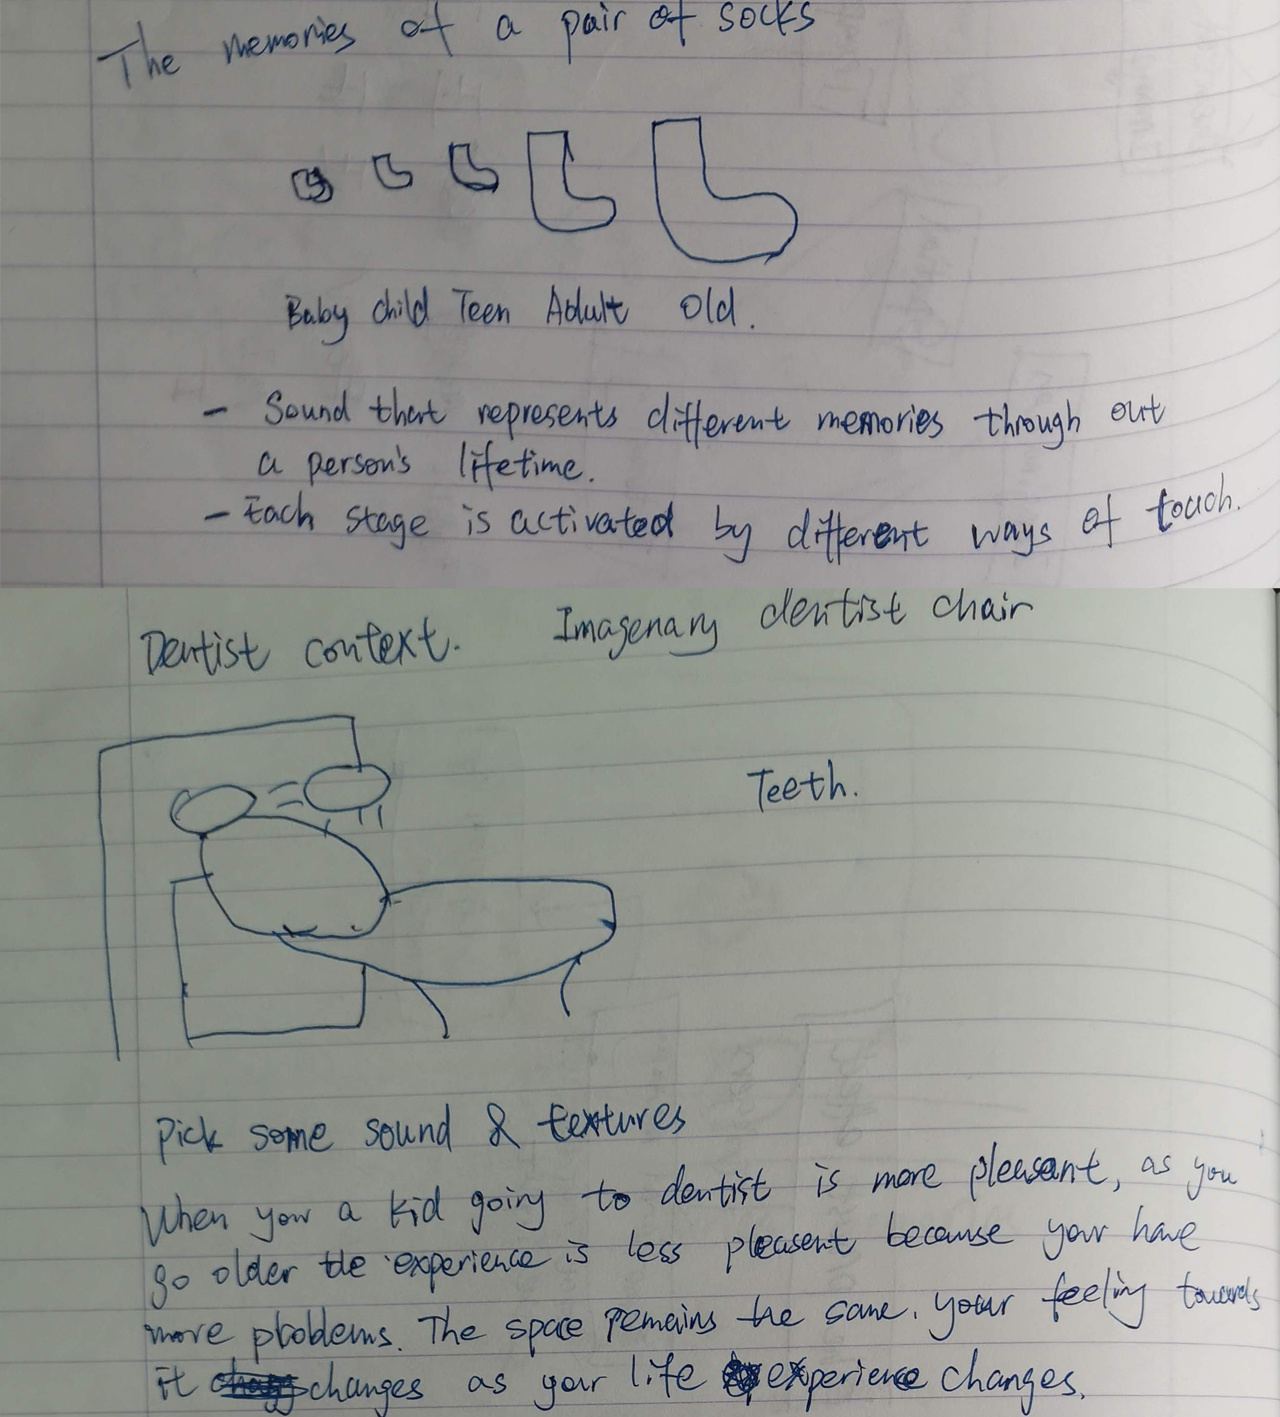 The memories of a pair of socks
Baby child Teen Adult old.
- Sound that represents different memories through out
a person's lifetime.
- Each stage is activated by different ways of touch.
Dentist context. Imagenary dentist chair
Teeth.
Pick some sound & textures
When your a kid going to dentist is more pleasant, as you
go older the experience is less pleasent because your have
more problems. The space remains the same, your feeling towards
it changes as your life experience changes.